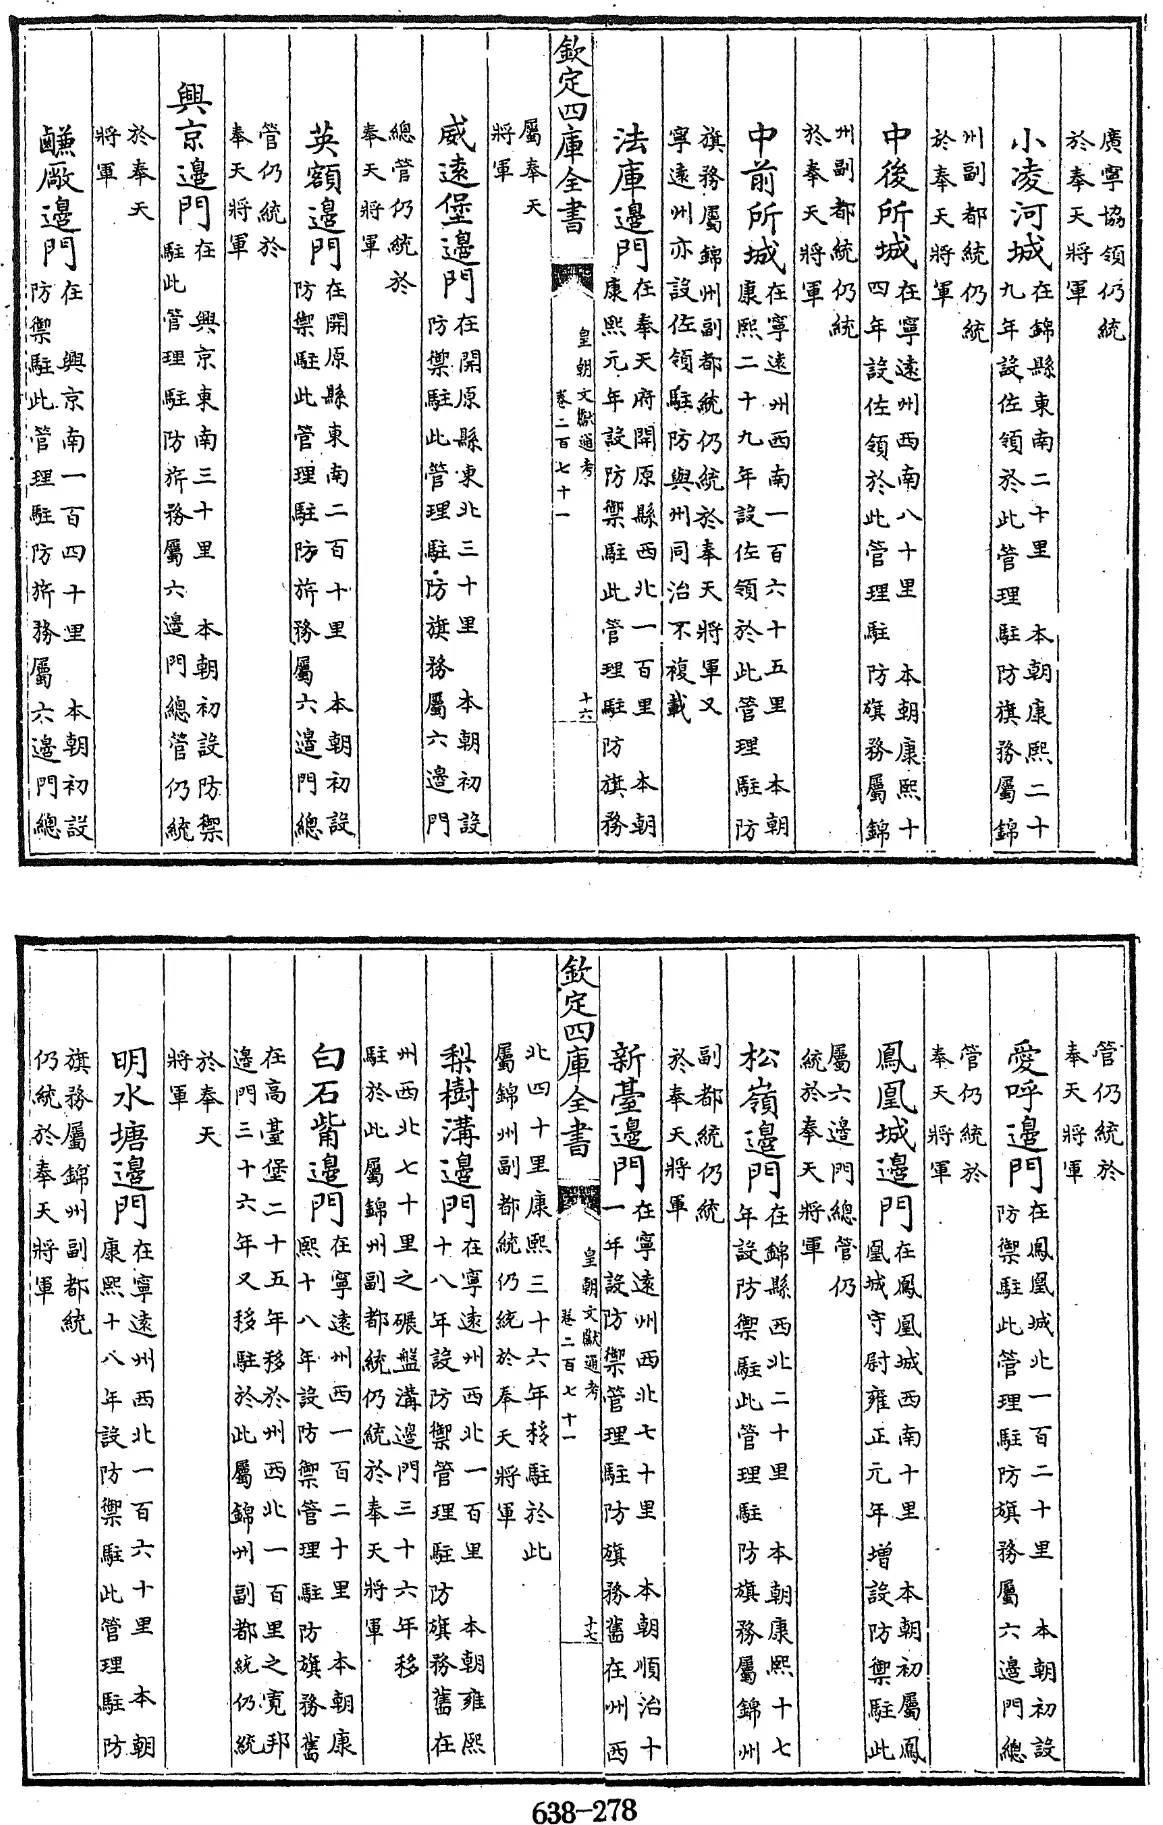 廣寧協領仍統
於奉天將軍
小凌河城
在錦縣東南二十里 本朝康熙二十
九年設佐領於此管理駐防旗務屬錦
州副都統仍統
於奉天將軍
中後所城
在寧遠州西南八十里 本朝康熙十
四年設佐領於此管理駐防旗務屬錦
州副都統仍統
於奉天將軍
中前所城
在寧遠州西南一百六十五里 本朝
康熙二十九年設佐領於此管理駐防
旗務屬錦州副都統仍統於奉天將軍又
寧遠州亦設佐領駐防與州同治不複載
法庫邊門
在奉天府開原縣西北一百里 本朝
康熙元年設防禦駐此管理駐防旗務
欽定四庫全書
皇朝文獻通考
卷二百七十一
十六
屬奉天
將軍
威遠堡邊門
在開原縣東北三十里 本朝初設
防禦駐此管理駐防旗務屬六邊門
總管仍統於
奉天將軍
英額邊門
在開原縣東南二百十里 本朝初設
防禦駐此管理駐防旂務屬六邊門總
管仍統於
奉天將軍
興京邊門
在 興京東南三十里 本朝初設防禦
駐此管理駐防旂務屬六邊門總管仍統
於奉天
將軍
鹻厰邊門
在 興京南一百四十里 本朝初設
防禦駐此管理駐防旂務屬六邊門總
管仍統於
奉天將軍
愛呼邊門
在鳳凰城北一百二十里 本朝初設
防禦駐此管理駐防旗務屬六邊門總
管仍統於
奉天將軍
鳳凰城邊門
在鳳凰城西南十里 本朝初屬鳳
凰城守尉雍正元年增設防禦駐此
屬六邊門總管仍
統於奉天將軍
松嶺邊門
在錦縣西北二十里 本朝康熙十七
年設防禦駐此管理駐防旗務屬錦州
副都統仍統
於奉天將軍
新臺邊門
在寧遠州西北七十里 本朝順治十
一年設防禦管理駐防旗務舊在州西
欽定四庫全書
皇朝文獻通考
卷二百七十一
十七
北四十里康熙三十六年移駐於此
屬錦州副都統仍統於奉天將軍
梨樹溝邊門
在寧遠州西北一百里 本朝雍熙
十八年設防禦管理駐防旗務舊在
州西北七十里之碾盤溝邊門三十六年移
駐於此屬錦州副都統仍統於奉天將軍
白石觜邊門
在寧遠州西一百二十里 本朝康
熙十八年設防禦管理駐防旗務舊
在高臺堡二十五年移於州西北一百里之寬邦
邊門三十六年又移駐於此屬錦州副都統仍統
於奉天
將軍
明水塘邊門
在寧遠州西北一百六十里 本朝
康熙十八年設防禦駐此管理駐防
旗務屬錦州副都統
仍統於奉天將軍
638-278